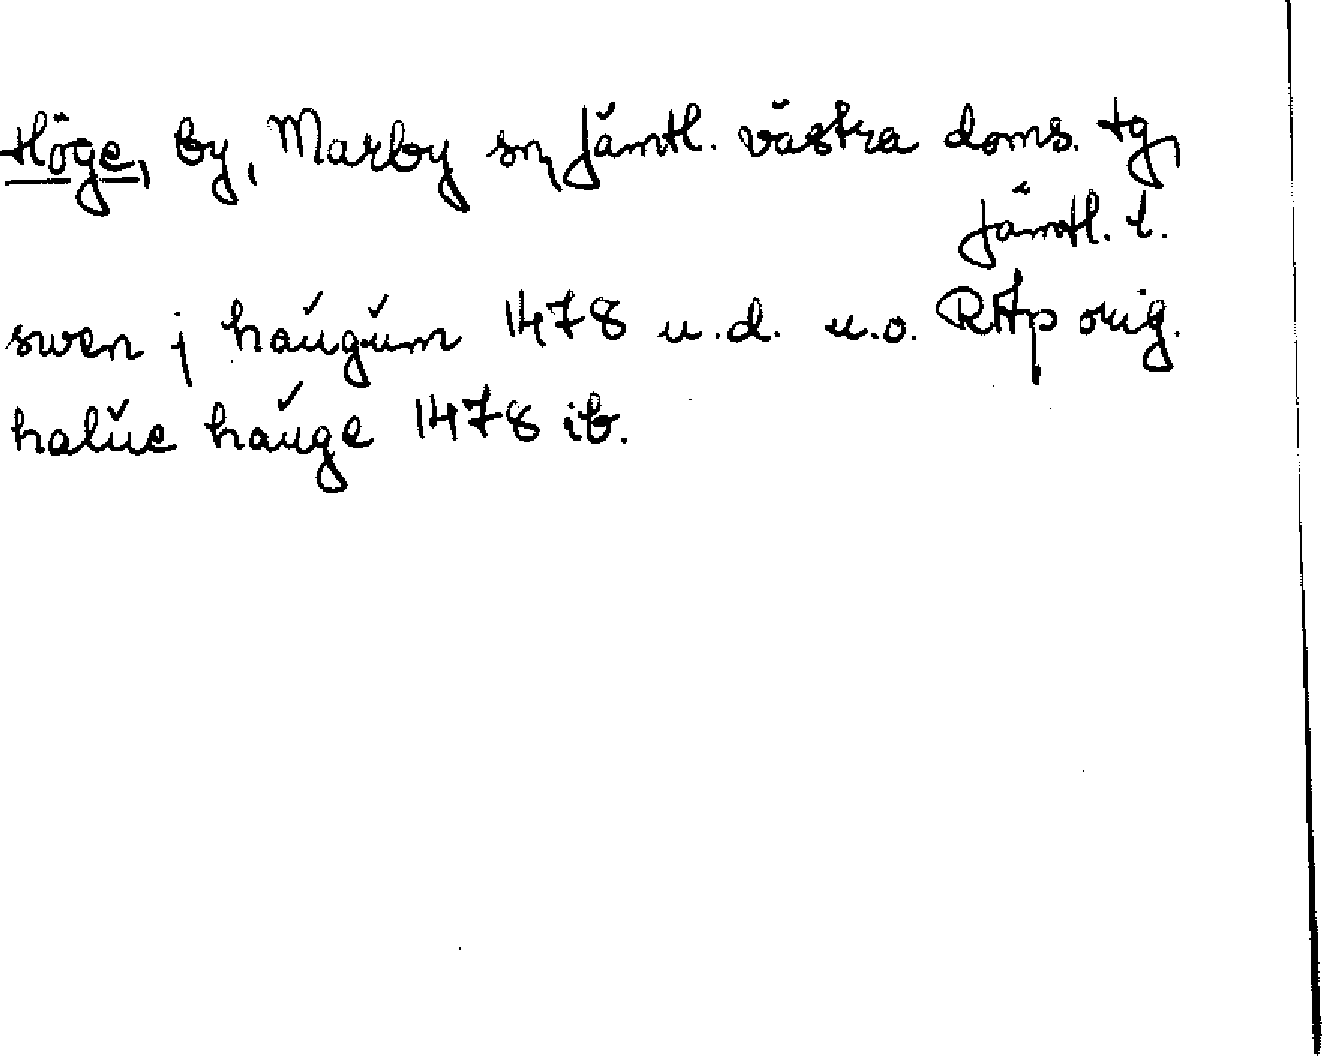 Höge, by, Marby sn, Jämtl. västra doms. tg,
Jämtl. l.
swen j haugum 1478 u.d. u.o. RAp orig.
halue hauge 1478 ib.